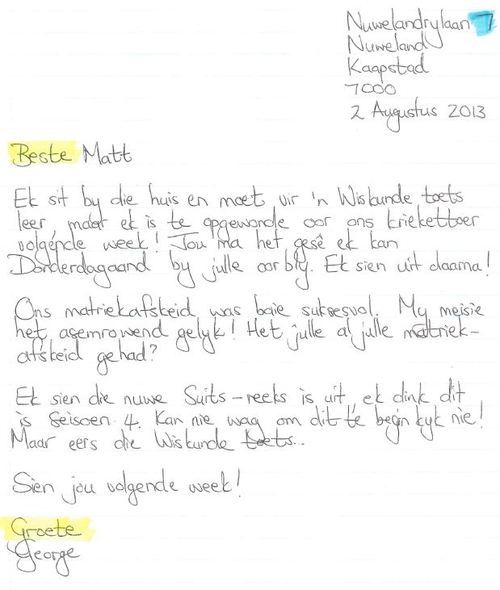 Nuwelandrylaan 7
Nuweland
Kaapstad
7000
2 Augustus 2013
Beste Matt
Ek sit by die huis en moet vir 'n Wiskunde toets
leer, maar ek is te opgewonde oor ons kriekettoer
volgende week! Jou ma het gesê ek kan
Donderdagaand by julle oorbly. Ek sien uit daarna!
Ons matriekafskeid was baie suksesvol. My meisie
het asemrowend gelyk! Het julle al julle matriek-
afskeid gehad?
Ek sien die nuwe Suits-reeks is uit, ek dink dit
is Seisoen 4. Kan nie wag om dit te begin kyk nie!
Maar eers die Wiskunde toets..
Sien jou volgende week!
Groete
George